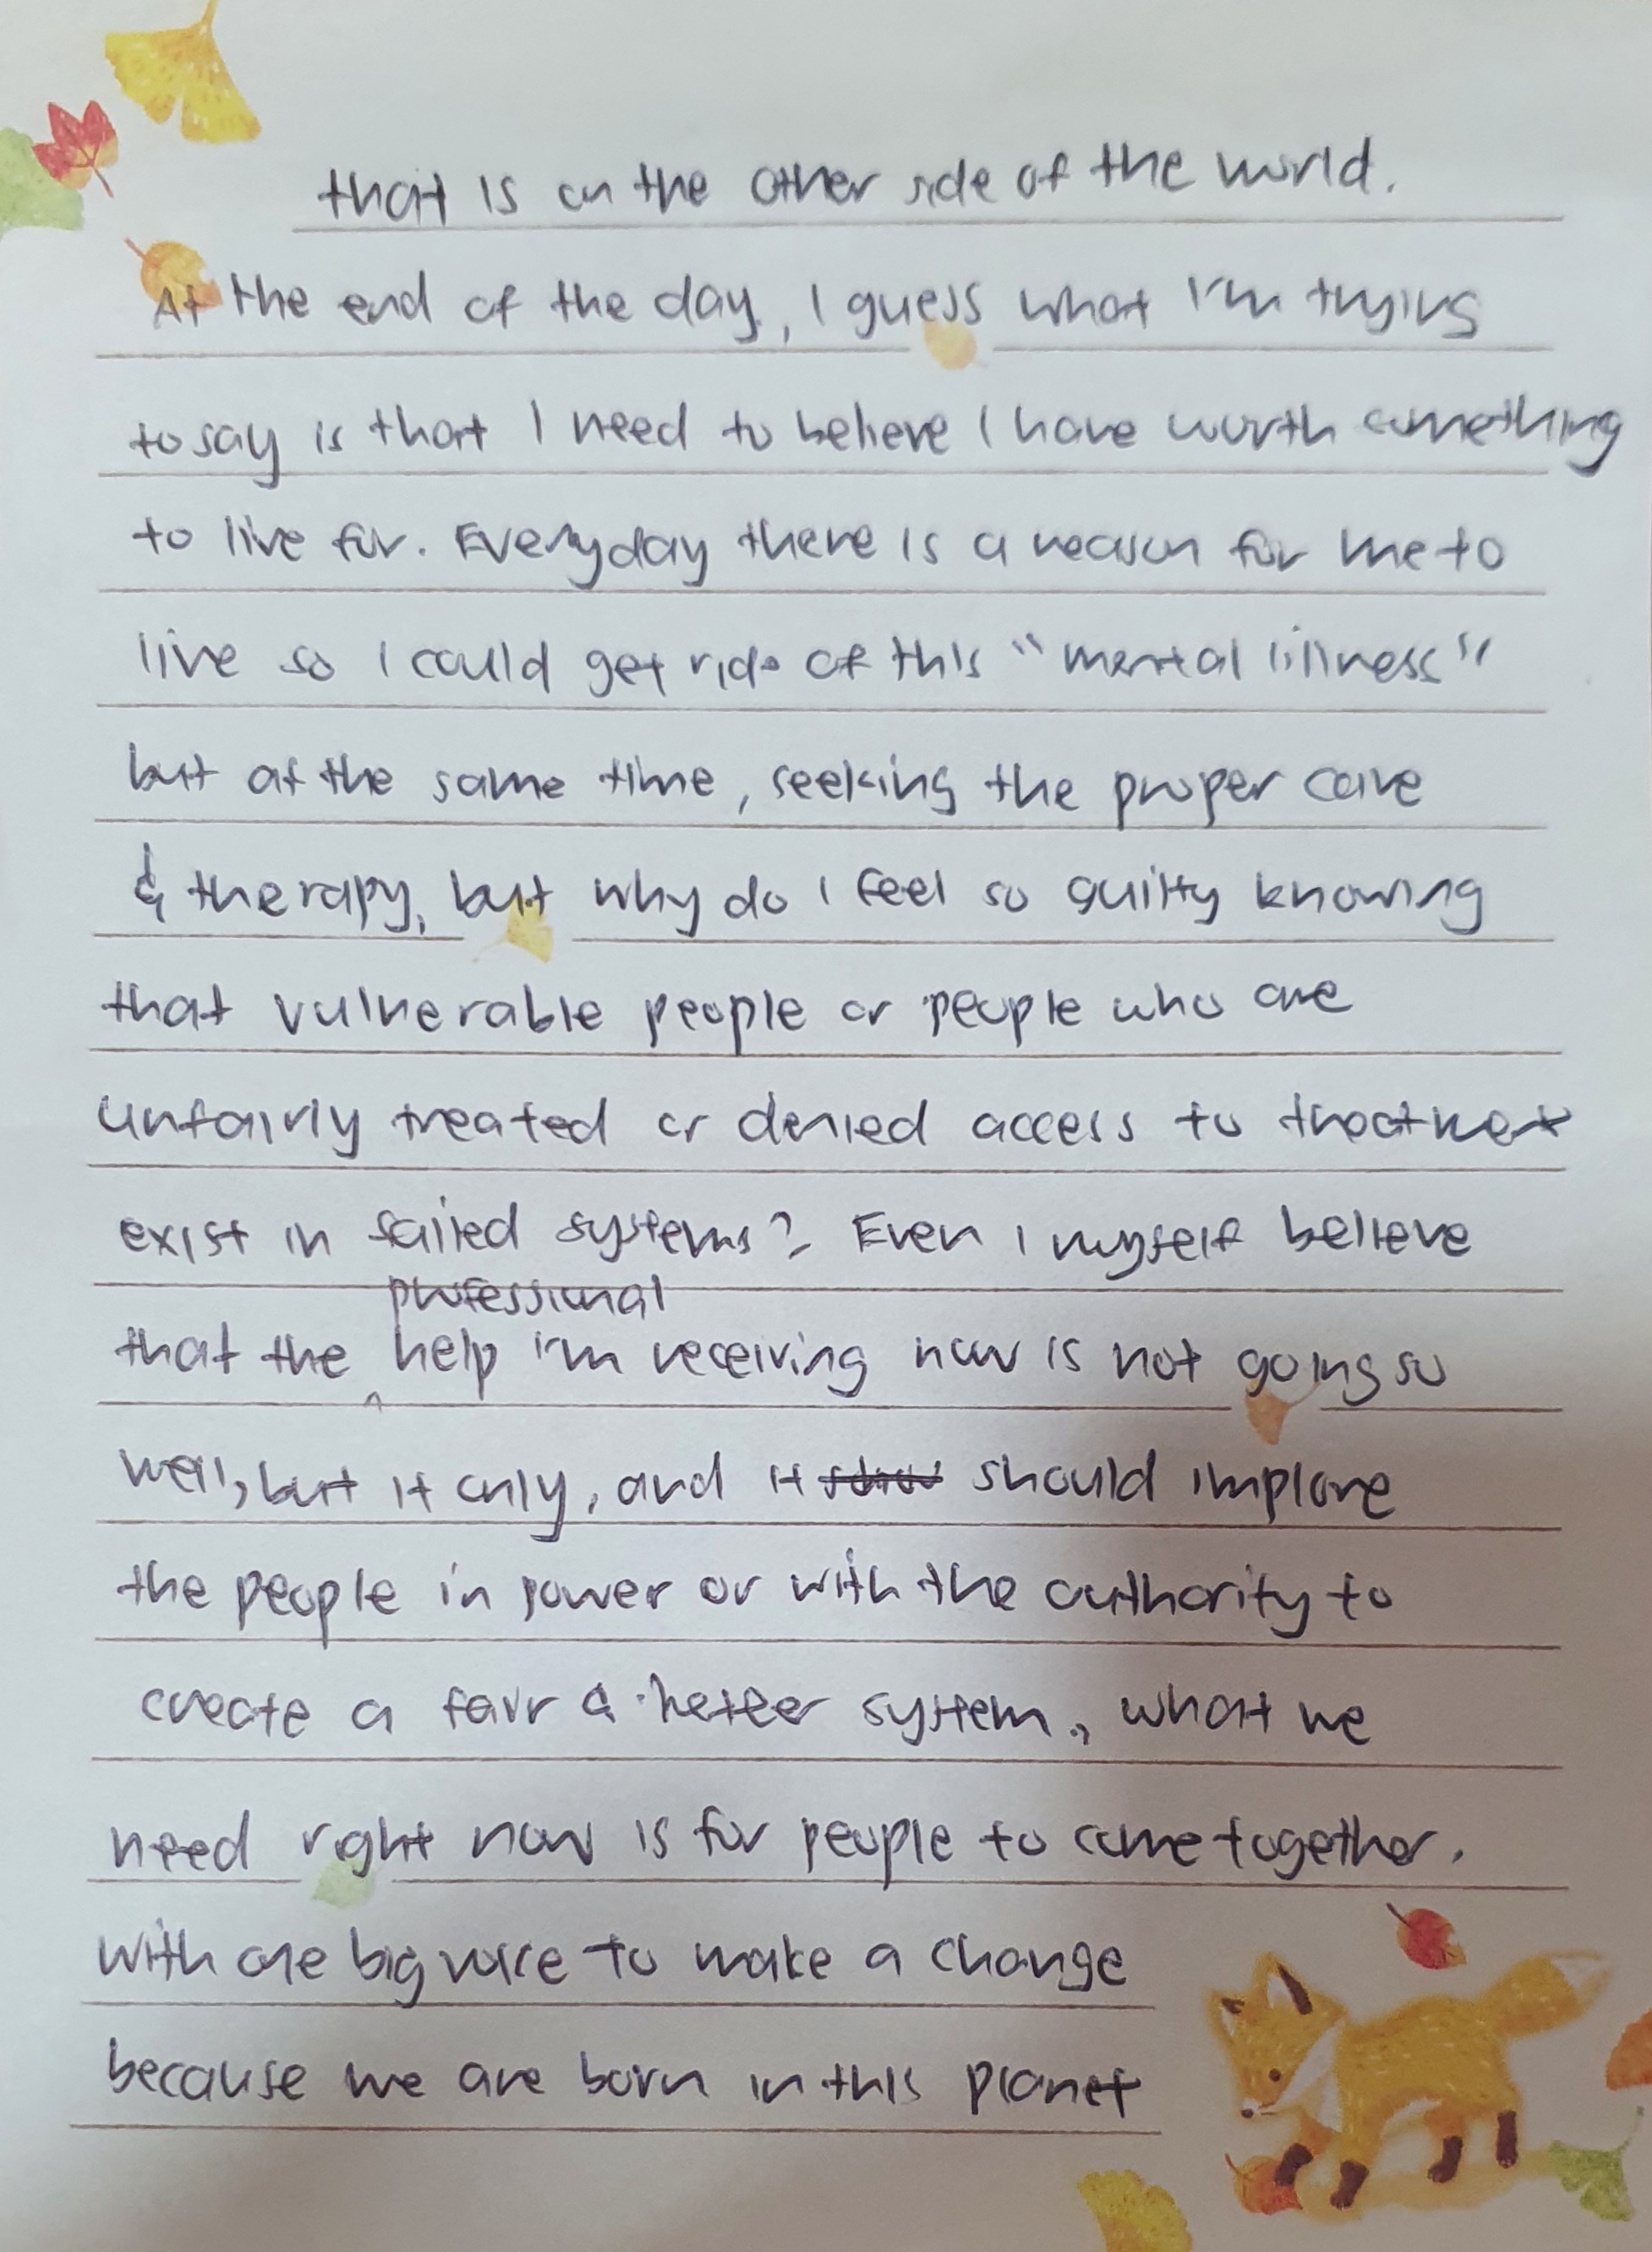 that is on the other side of the world.
At the end of the day, I guess what I'm trying
to say is that I need to believe I have worth something
to live for. Everyday there is a reason for me to
live so I could get ride of this "mental illness"
but at the same time, seeking the proper care
& therapy, but why do I feel so guilty knowing
that vulnerable people or people who are
unfairly treated or denied access to
exist in failed systems? Even I myself believe
that the professional help I'm receiving now is not going so
well, but it only, and it should implore
the people in power or with the authority to
create a fair & better system, what we
need right now is for people to come together.
with one big voice to make a change
because we are born in this planet